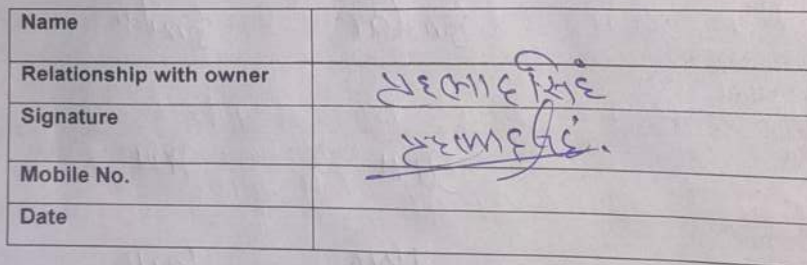 Name
Relationship with owner પ્રહલાદસિંહ
Signature પ્રહલાદસિંહ.
Mobile No.
Date